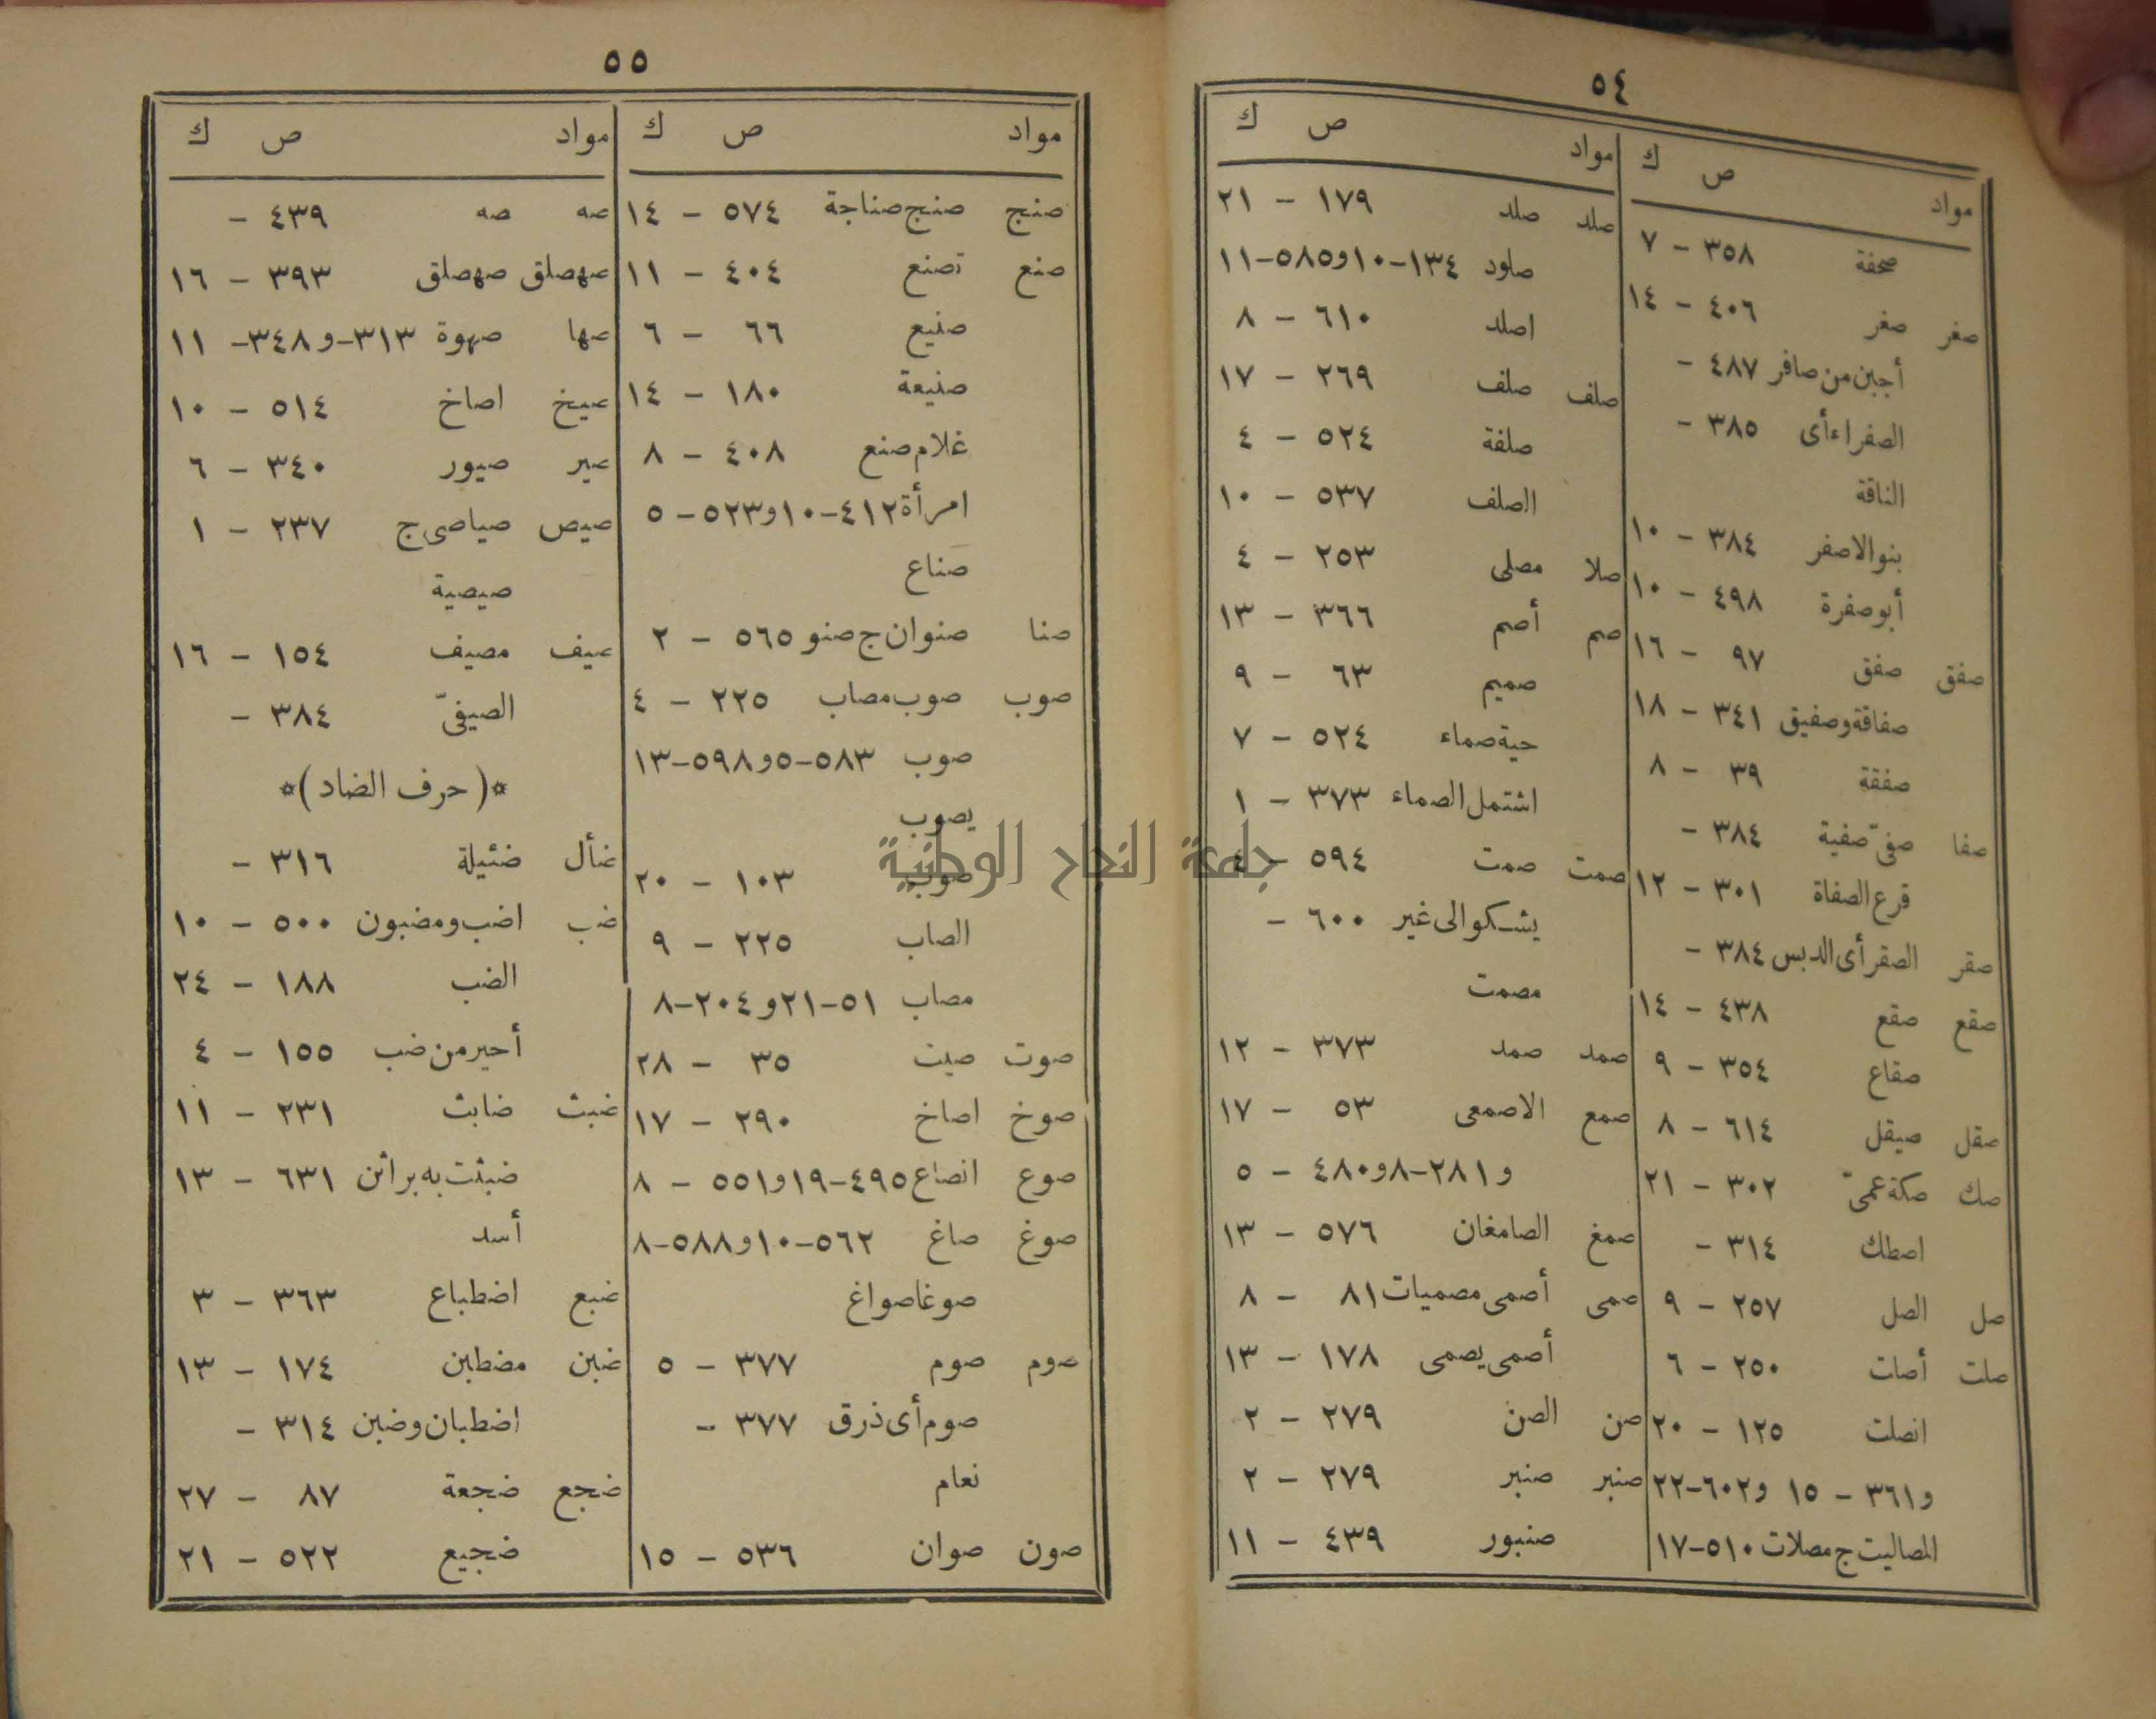 ٥٤
مواد ص ك
صحفة ٣٥٨ - ٧
صغر صغر ٤٠٦ - ١٤
أجبن من صافر ٤٨٧ -
الصفراء أى ٣٨٥ -
الناقة
بنو الاصفر ٣٨٤ - ١٠
أبو صفرة ٤٩٨ - ١٠
صفق صفق ٩٧ - ١٦
صفاقة وصفيق ٣٤١ - ١٨
صفقة ٣٩ - ٨
صفا صفىّ صفية ٣٨٤ -
قرع الصفاة ٣٠١ - ١٢
صقر الصقر أى الدبس ٣٨٤ -
صقع صقع ٤٣٨ - ١٤
صقاع ٣٥٤ - ٩
صقل صيقل ٦١٤ - ٨
صك صكة عمىّ ٣٠٢ - ٢١
اصطك ٣١٤ -
صل الصل ٢٥٧ - ٩
صلت أصات ٢٥٠ - ٦
انصلت ١٢٥ - ٢٠
و٣٦١ - ١٥ و٦٠٢-٢٢
المصاليت ج مصلات ٥١٠-١٧
مواد ص ك
صلد صلد ١٧٩ - ٢١
صلود ١٣٤-١٠و٥٨٥-١١
اصلد ٦١٠ - ٨
صلف صلف ٢٦٩ - ١٧
صلفة ٥٢٤ - ٤
الصلف ٥٣٧ - ١٠
صلا مصلى ٢٥٣ - ٤
صم أصم ٣٦٦ - ١٣
صميم ٦٣ - ٩
حية صماء ٥٢٤ - ٧
اشتمل الصماء ٣٧٣ - ١
صمت صمت ٥٩٤ - ٤
يشكو الى غير ٦٠٠ -
مصمت
صمد صمد ٣٧٣ - ١٢
صمع الاصمعى ٥٣ - ١٧
و٢٨١-٨و٤٨٠ - ٥
صمغ الصامغان ٥٧٦ - ١٣
صمى أصمى مصميات ٨١ - ٨
أصمى يصمى ١٧٨ - ١٣
صن الصن ٢٧٩ - ٢
صنبر صنبر ٢٧٩ - ٢
صنبور ٤٣٩ - ١١
٥٥
مواد ص ك
صنج صنج صناجة ٥٧٤ - ١٤
صنع تصنع ٤٠٤ - ١١
صنيع ٦٦ - ٦
صنيعة ١٨٠ - ١٤
غلام صنع ٤٠٨ - ٨
امرأة ٤١٢-١٠و٥٢٣- ٥
صناع
صنا صنوان ج صنو ٥٦٥ - ٢
صوب صوب مصاب ٢٢٥ - ٤
صوب ٥٨٣-٥و٥٩٨-١٣
يصوب
صوب ١٠٣ - ٢٠
الصاب ٢٢٥ - ٩
مصاب ٥١-٢١و٢٠٤-٨
صوت صيت ٣٥ - ٢٨
صوخ اصاخ ٢٩٠ - ١٧
صوع انصاع ٤٩٥-١٩و٥٥١ - ٨
صوغ صاغ ٥٦٢-١٠و٥٨٨-٨
صوغا صواغ
صوم صوم ٣٧٧ - ٥
صوم أى ذرق ٣٧٧ -
نعام
صون صوان ٥٣٦ - ١٥
مواد ص ك
صه صه ٤٣٩ -
صهصلق صهصلق ٣٩٣ - ١٦
صها صهوة ٣١٣-و٣٤٨- ١١
صيخ اصاخ ٥١٤ - ١٠
صير صيور ٣٤٠ - ٦
صيص صياصى ج ٢٣٧ - ١
صيصية
صيف مصيف ١٥٤ - ١٦
الصيفىّ ٣٨٤ -
*(حرف الضاد)*
ضأل ضئيلة ٣١٦ -
ضب اضب ومضبون ٥٠٠ - ١٠
الضب ١٨٨ - ٢٤
أحير من ضب ١٥٥ - ٤
ضبث ضابث ٢٣١ - ١١
ضبثت به براثن ٦٣١ - ١٣
أسد
ضبع اضطباع ٣٦٣ - ٣
ضبن مضطبن ١٧٤ - ١٣
اضطبان وضبن ٣١٤ -
ضجع ضجعة ٨٧ - ٢٧
ضجيع ٥٢٢ - ٢١
جامعة النجاح الوطنية